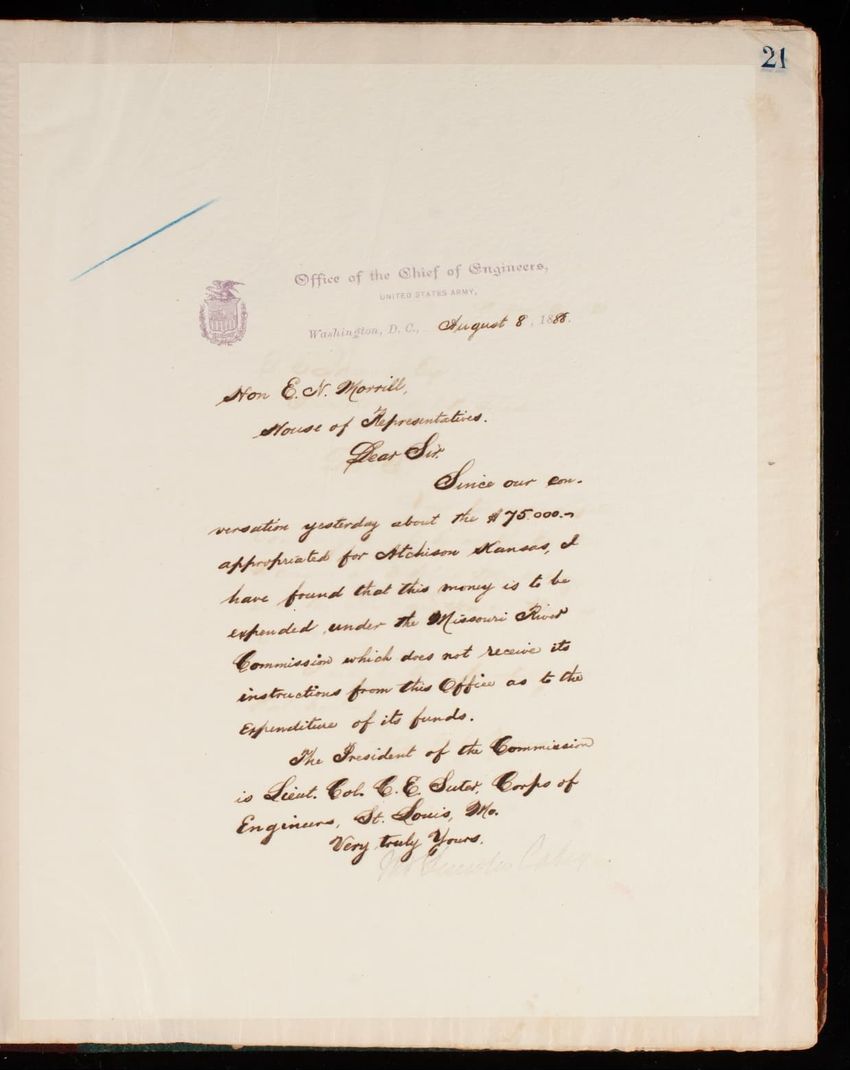 21
Office of the Chief of Engineers,
UNITED STATES ARMY,
Washington, D. C., August 8, 1888.
Hon E. N. Morrill,
House of Representatives.
Dear Sir.
Since our con-
versation yesterday about the $75.000.-
appropriated for Atchison Kansas, I
have found that this money is to be
expended under the Missouri River
Commission which does not receive its
instructions from this Office as to the
Expenditure of its funds.
The President of the Commission
is Lieut. Col. C. E. Suter, Corps of
Engineers, St. Louis, Mo.
Very truly Yours.
Lincoln Casey